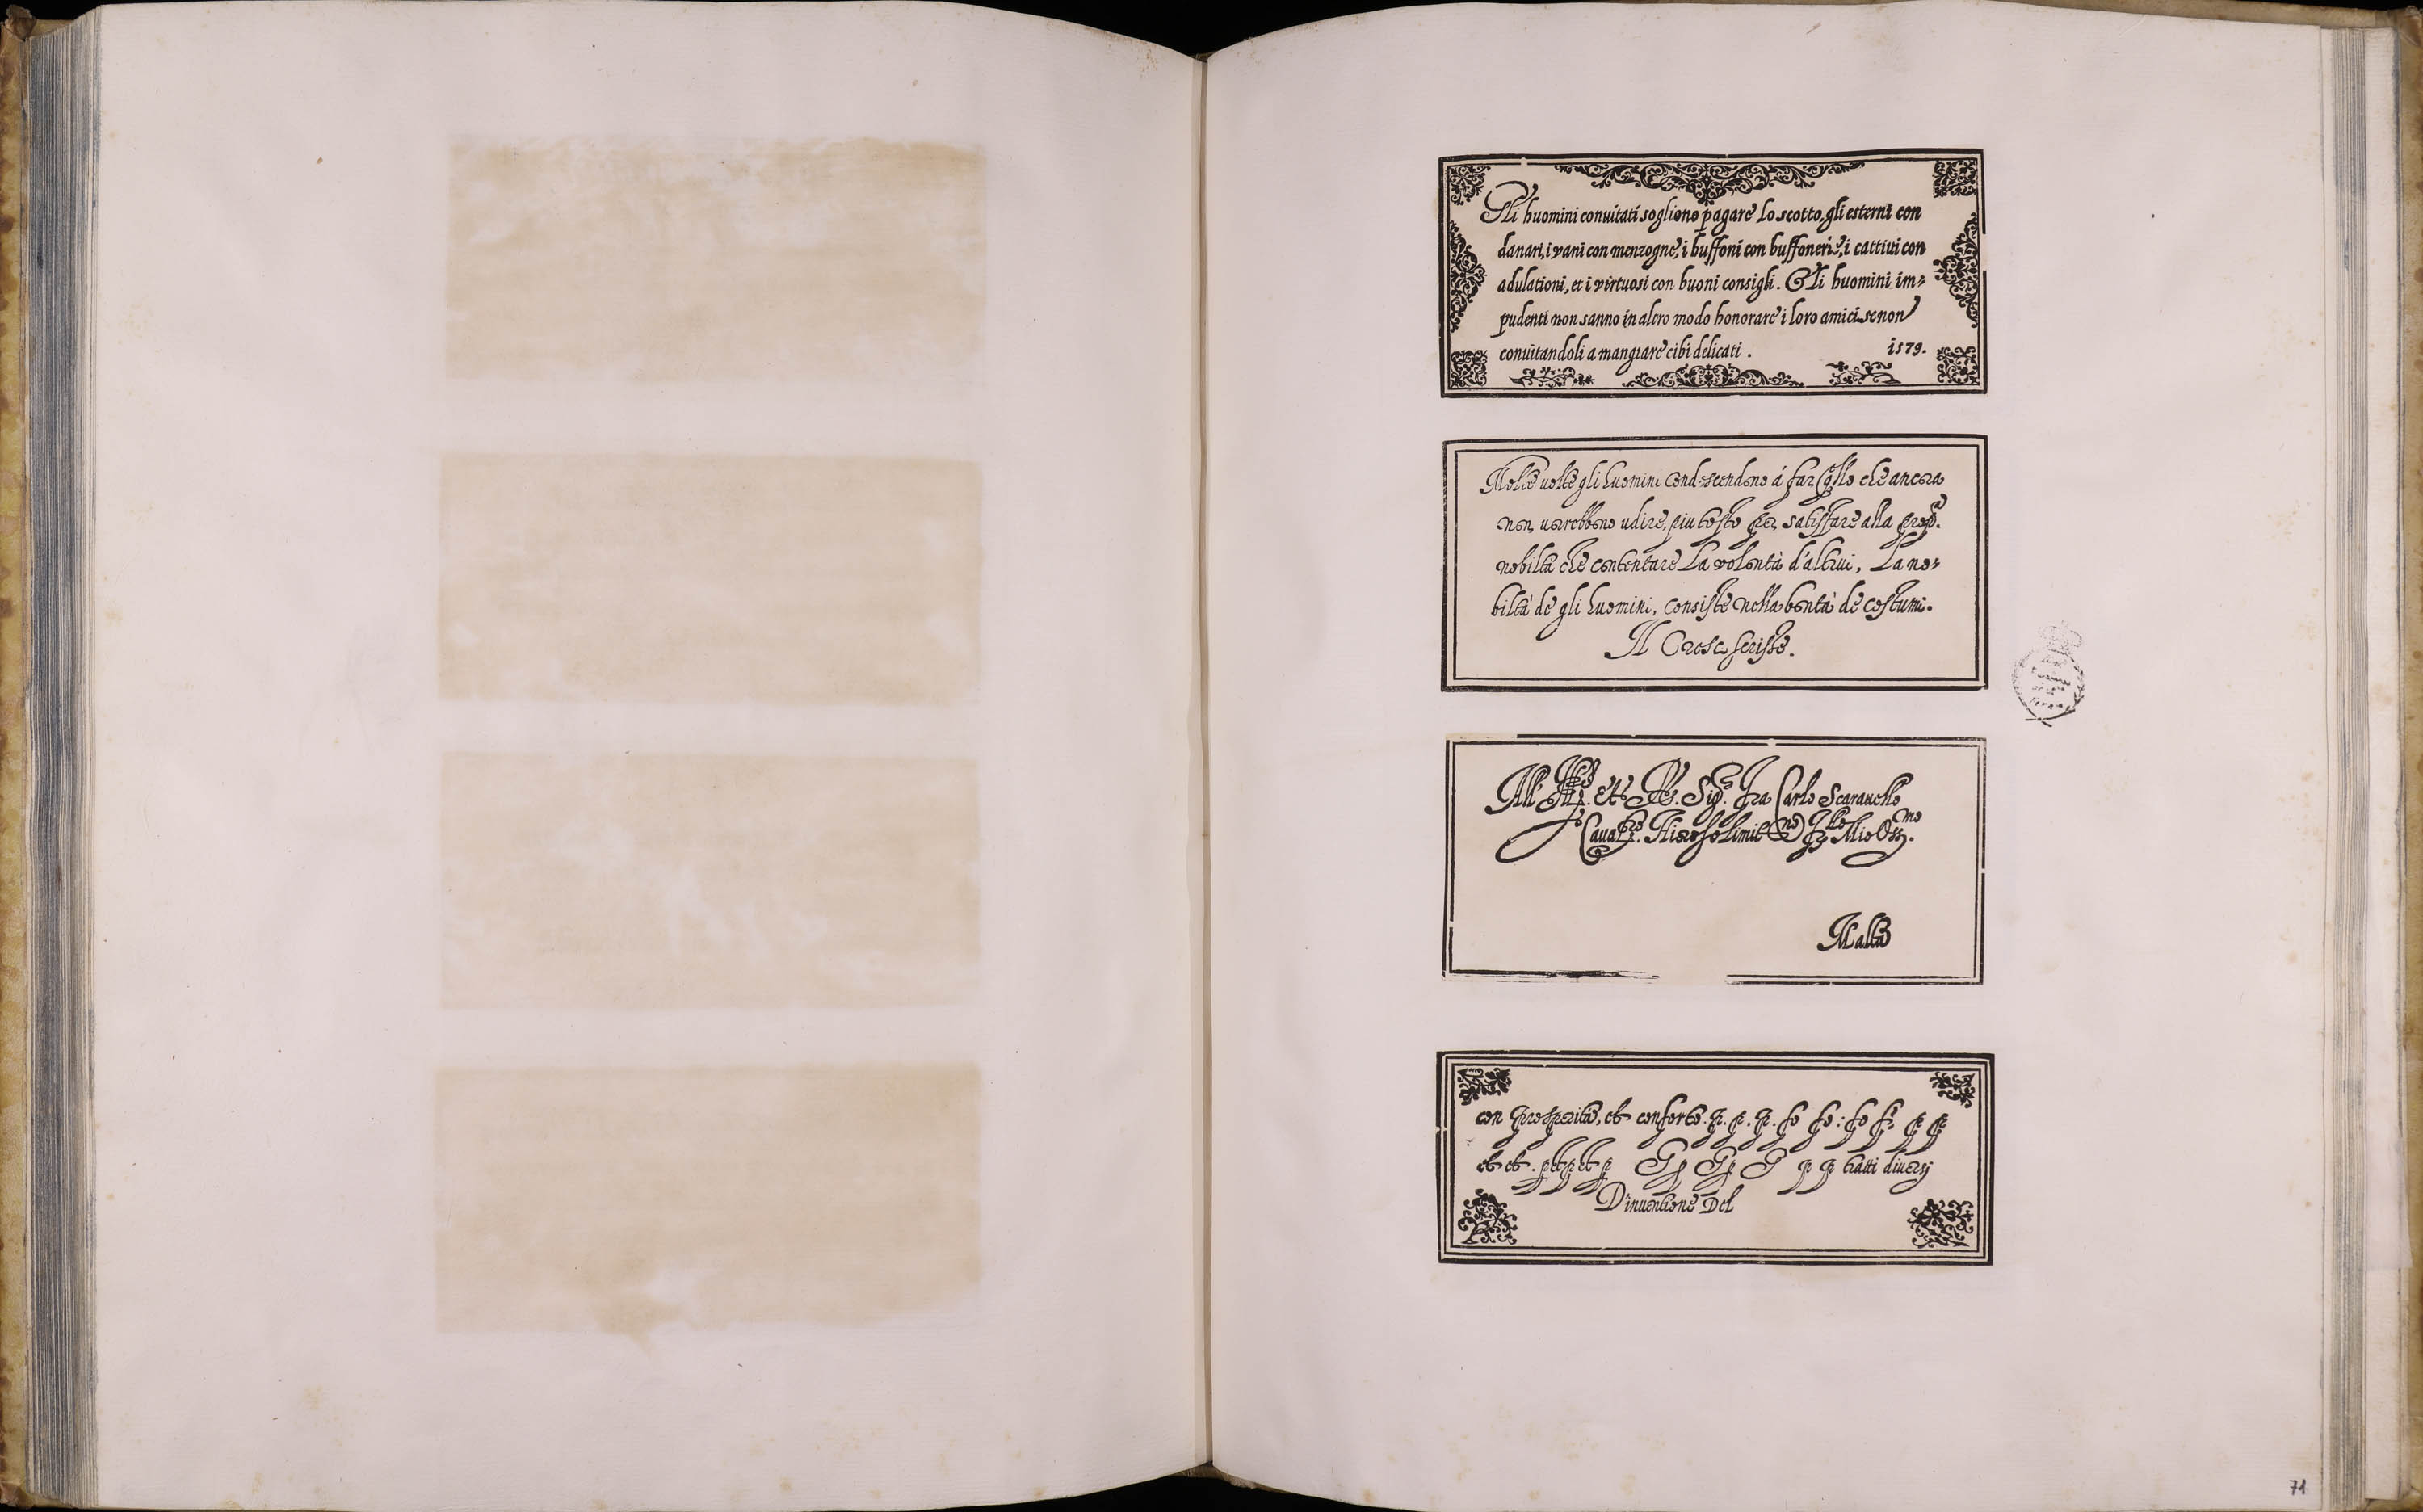 Gli huomini conuitati sogliono pagare lo scotto, gli esterni con
danari, i vani con menzogne, i buffoni con buffonerie, i cattiui con
adulationi, et i virtuosi con buoni consigli. Gli huomini im=
pudenti non sanno in altro modo honorare i loro amici se non
conuitandoli a mangiare cibi delicati.
1579.
Molte uolte gli huomini condescendono á far quello che ancora
non uorrebbono udire, piu tosto per satisfare alla prop.a
nobiltà che contentare la volontà d'altrui, La no=
biltà de gli huomini, consiste nella bontà de costumi.
Il Cresci scrisse.
All' Ill. et R. Sig.r fra Carlo Scarauello
Caual.re Hierosolimit.no Mio Oss.mo
Malta
con prosperità, et conforto. p. p. p. fo fo: fo f. p p
et et. p p tratti diuersi
D'inuentione Del
71